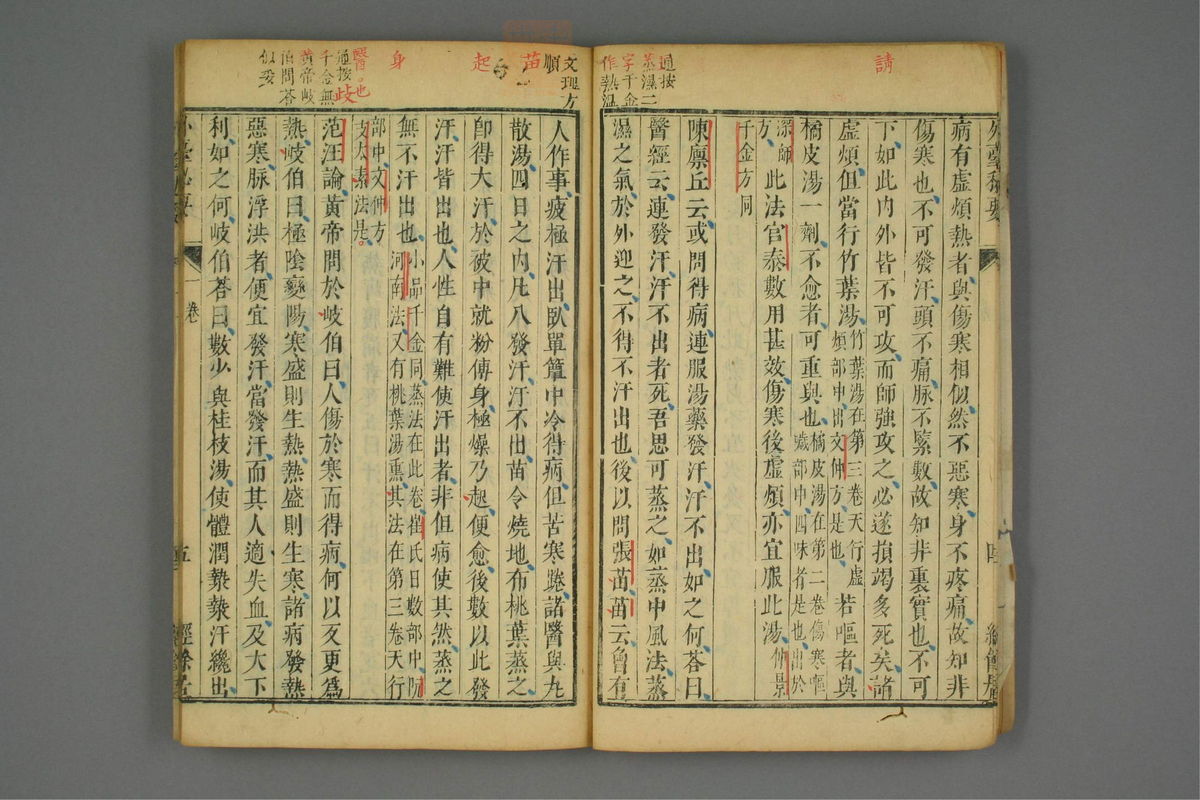 請
通按
蒸濕二
字千金
作熱溫
外臺秘要
病有虛煩熱者與傷寒相似然不惡寒身不疼痛故知非
傷寒也不可發汗頭不痛脉不緊數故知非裏實也不可
下如此內外皆不可攻而師強攻之必遂損竭多死矣諸
虛煩但當行竹葉湯竹葉湯在第三卷天行虛
煩部中出文仲方是也若嘔者與
橘皮湯一劑不愈者可重與也橘皮湯在第二卷傷寒嘔
噦部中四味者是也出於
深師
方此法官泰數用甚效傷寒後虛煩亦宜服此湯仲景
千金方同
陳廩丘云或問得病連服湯藥發汗汗不出如之何荅曰
醫經云連發汗汗不出者死吾思可蒸之如蒸中風法蒸
濕之氣於外迎之不得不汗出也後以問張苗苗云曾有
文理方
順
苗
起
身
醫也
歧
通按
千金無
黃帝岐
伯問荅
似妥
人作事疲極汗出臥單簟中冷得病但苦寒踡諸醫與丸
散湯四日之內凡八發汗汗不出苗令燒地布桃葉蒸之
卽得大汗於被中就粉傅身極燥乃起便愈後數以此發
汗汗皆出也人性自有難使汗出者非但病使其然蒸之
無不汗出也小品千金同蒸法在此卷崔氏日數部中阮
河南法又有桃葉湯熏其法在第三卷天行
部中文仲方
支太素法是
范汪論黃帝問於岐伯曰人傷於寒而得病何以反更爲
熱岐伯曰極陰變陽寒盛則生熱熱盛則生寒諸病發熱
惡寒脉浮洪者便宜發汗當發汗而其人適失血及大下
利如之何岐伯荅曰數少與桂枝湯使體潤漐漐汗纔出
一卷
五
經餘居